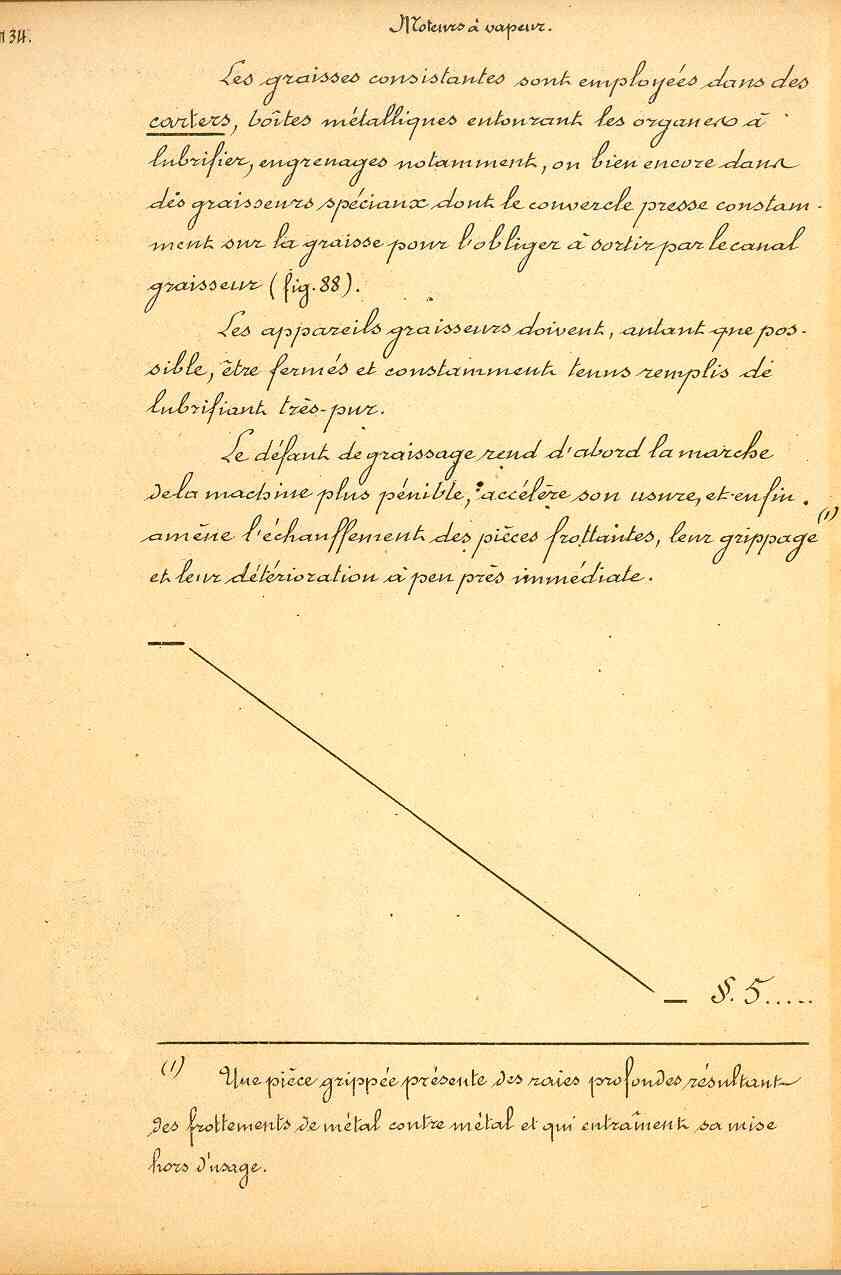 134.
Moteurs à vapeur.
Les graisses consistantes sont employées dans des
carters, boîtes métalliques entourant les organes à
lubrifier, engrenages notamment, ou bien encore dans
des graisseurs spéciaux dont le couvercle presse constam-
ment sur la graisse pour l'obliger à sortir par le canal
graisseur (fig. 88).
Les appareils graisseurs doivent, autant que pos-
sible, être fermés et constamment tenus remplis de
lubrifiant très-pur.
Le défaut de graissage rend d'abord la marche
de la machine plus pénible, accélère son usure, et enfin
amène l'échauffement des pièces frottantes, leur grippage (1)
et leur détérioration à peu près immédiate.
§. 5.....
(1) Une pièce grippée présente des raies profondes résultant
des frottements de métal contre métal et qui entraînent sa mise
hors d'usage.